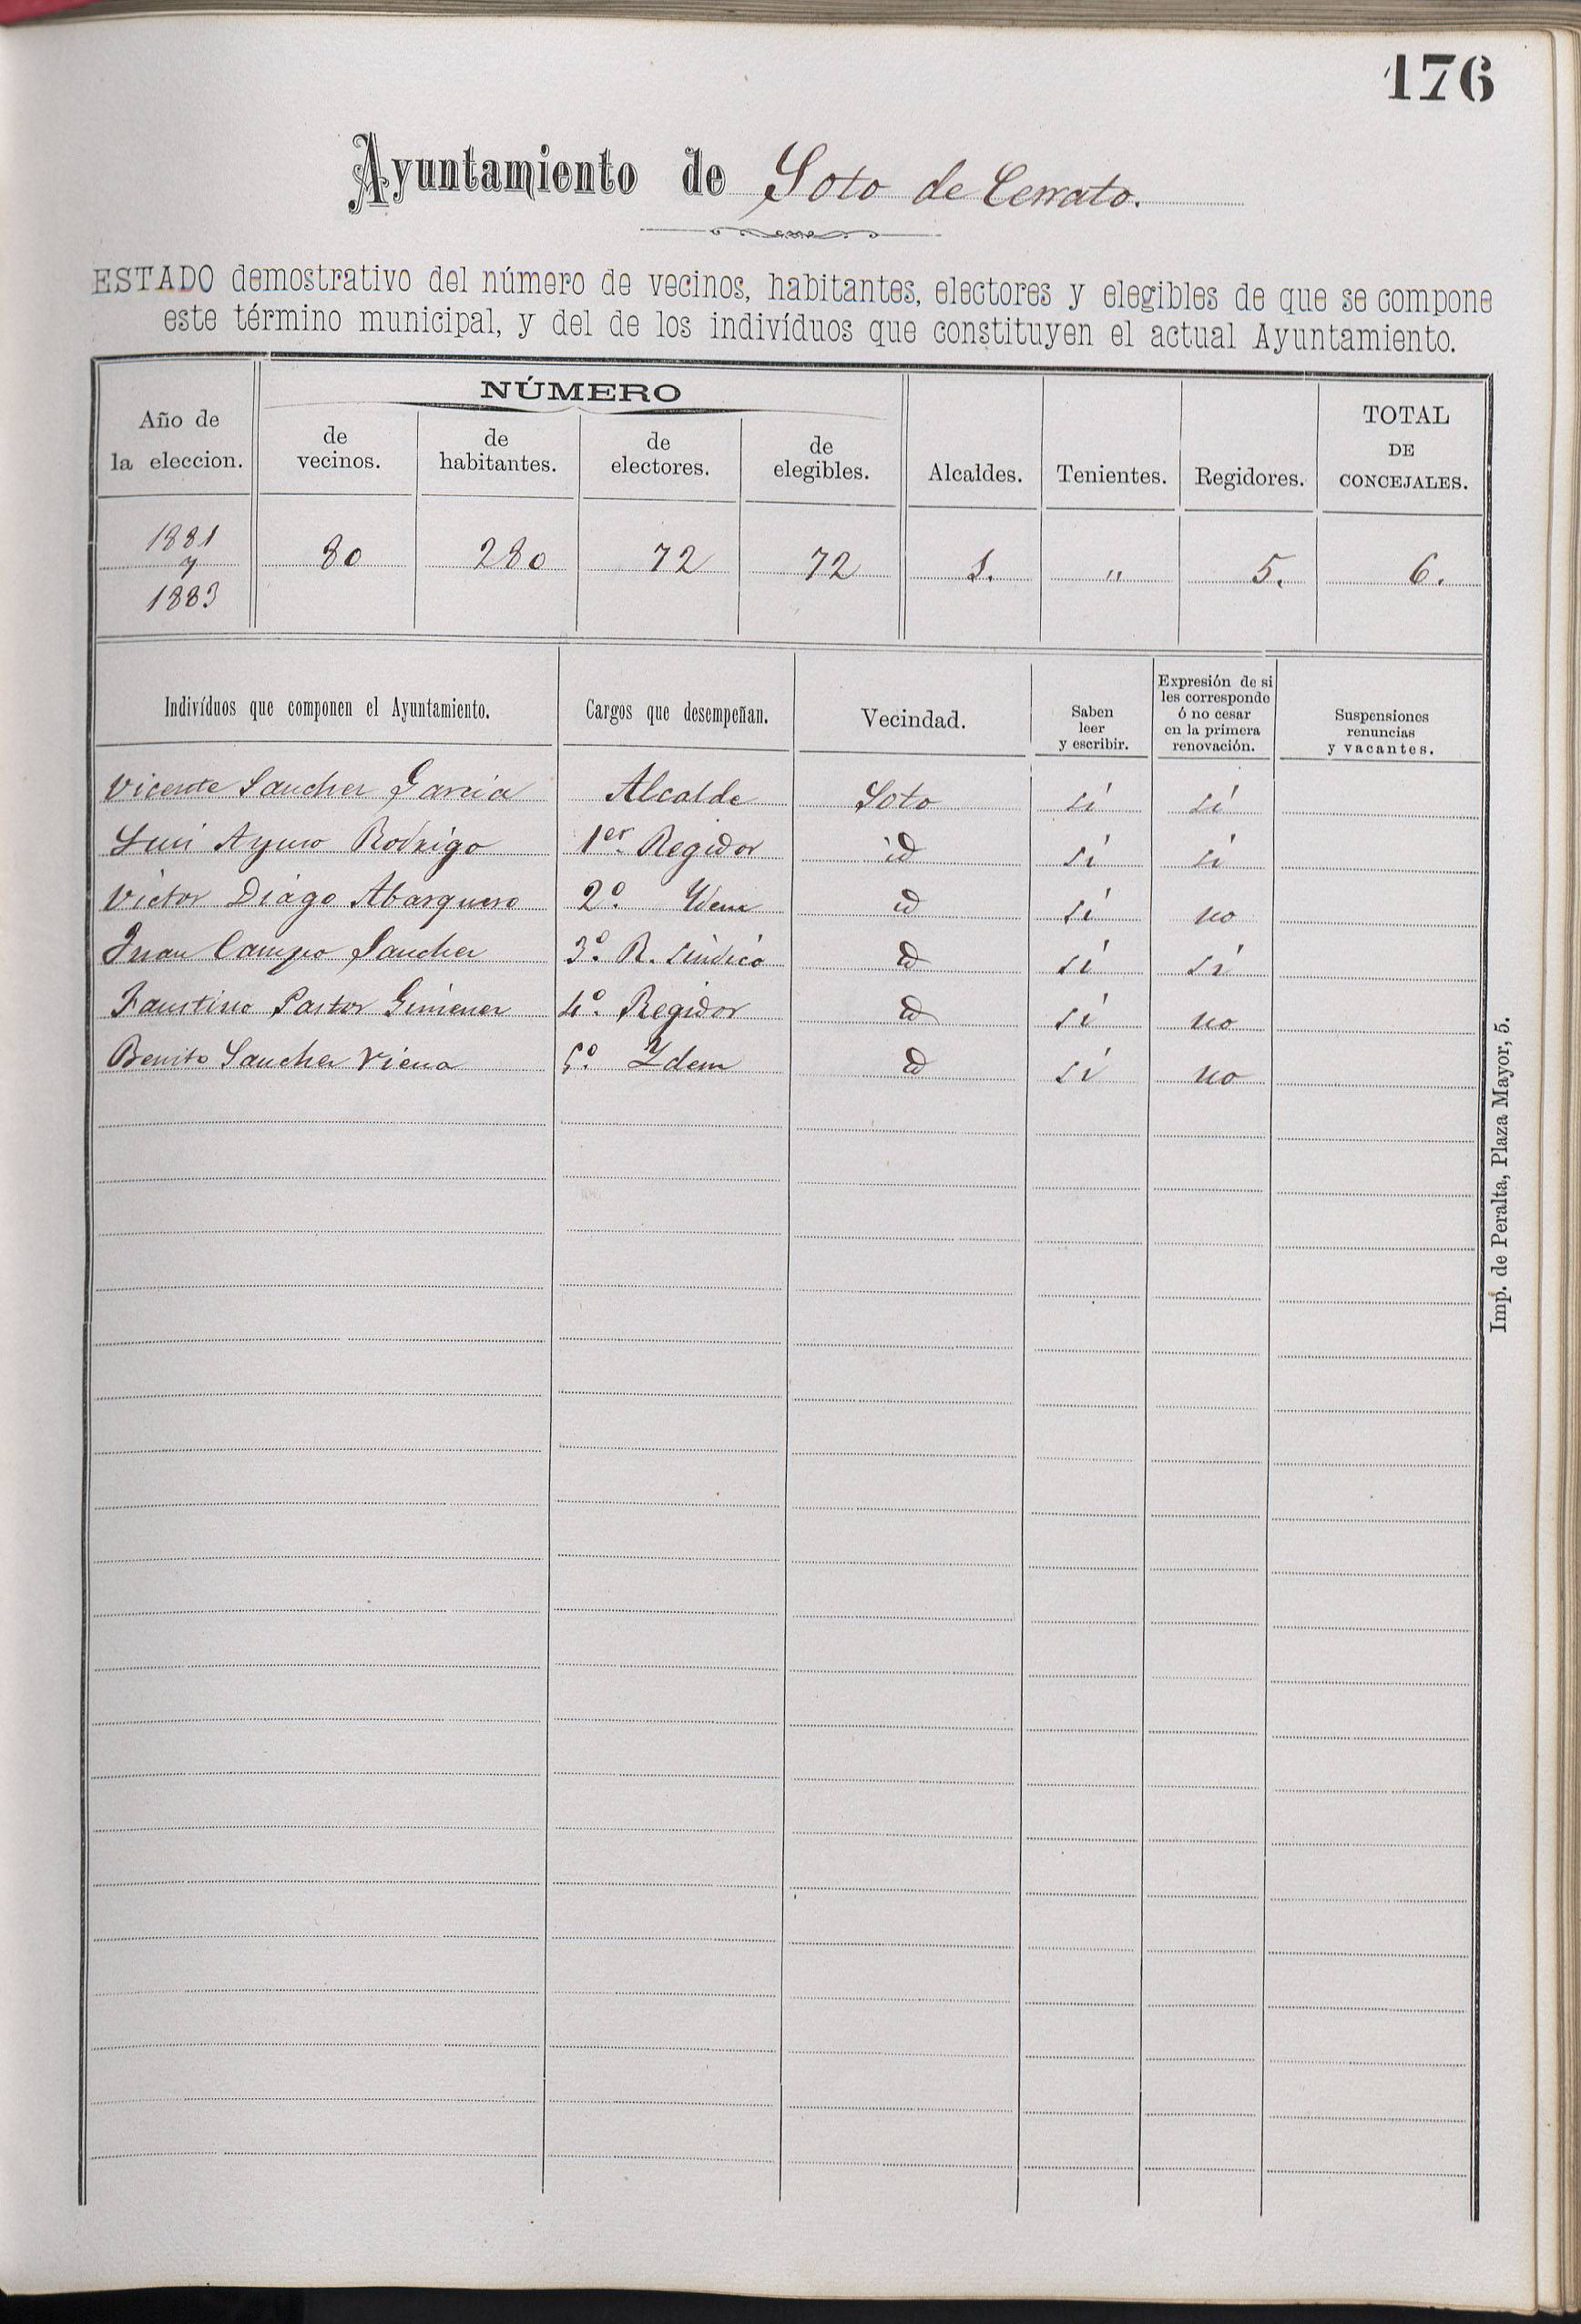 176
Ayuntamiento de Soto de Cerrato.
ESTADO demostrativo del número de vecinos, habitantes, electores y elegibles de que se compone
este término municipal, y del de los indivíduos que constituyen el actual Ayuntamiento.
Año de la eleccion. NÚMERO de vecinos. de habitantes. de electores. de elegibles. Alcaldes. Tenientes. Regidores. TOTAL DE CONCEJALES.
1881 y 1883 80 280 72 72 1. " 5. 6.
Indivíduos que componen el Ayuntamiento. Cargos que desempeñan. Vecindad. Saben leer y escribir. Expresión de si les corresponde ó no cesar en la primera renovación. Suspensiones renuncias y vacantes.
Vicente Sanchez Garcia Alcalde Soto si si
Luis Ayuso Rodrigo 1er. Regidor id si si
Victor Diago Abarquero 2º. Idem id si no
Juan Campo Sanchez 3º. R. sindico id si si
Faustino Pastor Gimenez 4º. Regidor id si no
Benito Sanchez 5º. Idem id si no
Imp. de Peralta, Plaza Mayor, 5.